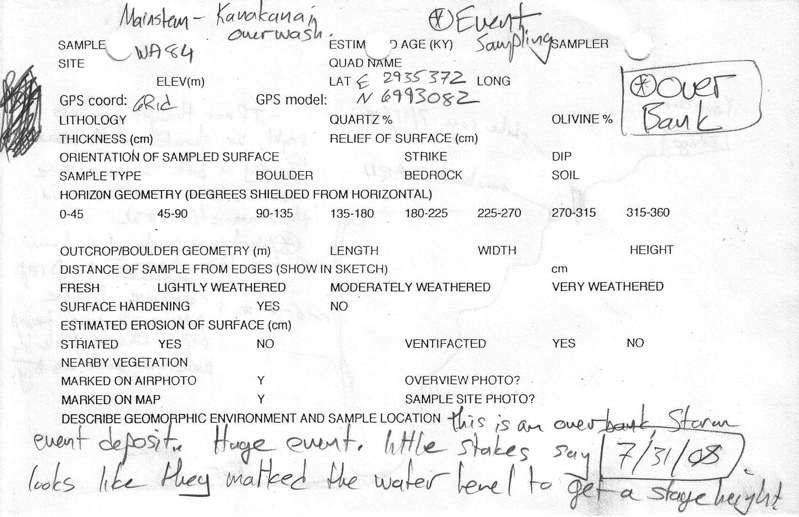 Mainstem - Kanakanain ⊛ Event
overwash. Sampling
SAMPLE WA84 ESTIM D AGE (KY) SAMPLER
SITE QUAD NAME
ELEV(m) LAT E 2935372 LONG
GPS coord: GRid GPS model: N 6993082 ⊛ Over Bank
LITHOLOGY QUARTZ % OLIVINE %
THICKNESS (cm) RELIEF OF SURFACE (cm)
ORIENTATION OF SAMPLED SURFACE STRIKE DIP
SAMPLE TYPE BOULDER BEDROCK SOIL
HORIZ0N GEOMETRY (DEGREES SHIELDED FROM HORIZONTAL)
0-45 45-90 90-135 135-180 180-225 225-270 270-315 315-360
OUTCROP/BOULDER GEOMETRY (m) LENGTH WIDTH HEIGHT
DISTANCE OF SAMPLE FROM EDGES (SHOW IN SKETCH) cm
FRESH LIGHTLY WEATHERED MODERATELY WEATHERED VERY WEATHERED
SURFACE HARDENING YES NO
ESTIMATED EROSION OF SURFACE (cm)
STRIATED YES NO VENTIFACTED YES NO
NEARBY VEGETATION
MARKED ON AIRPHOTO Y OVERVIEW PHOTO?
MARKED ON MAP Y SAMPLE SITE PHOTO?
DESCRIBE GEOMORPHIC ENVIRONMENT AND SAMPLE LOCATION this is an overbank Storm
event deposit. Huge event. little stakes say 7/31/08.
looks like they marked the water level to get a stage height